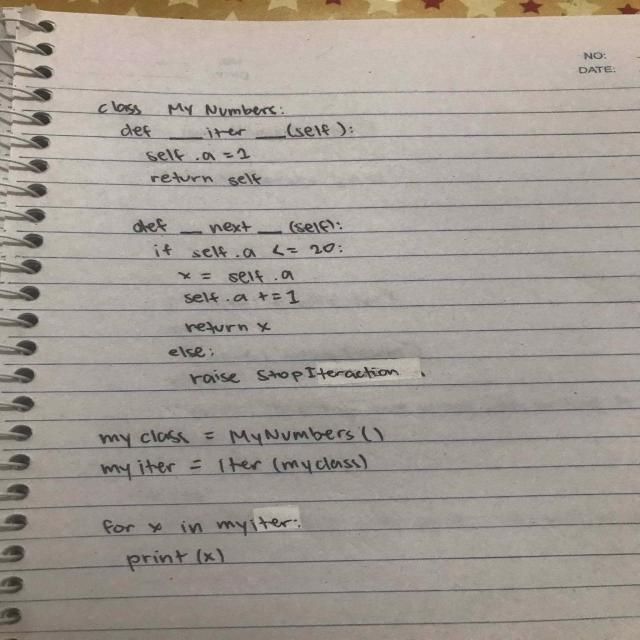 NO:
DATE:
class My Numbers:
def __iter__(self):
self.a = 1
return self
def __next__(self):
if self.a <= 20:
x = self.a
self.a += 1
return x
else:
raise StopIteraction.
myclass = MyNumbers()
myiter = Iter(myclass)
for x in myiter:
print(x)